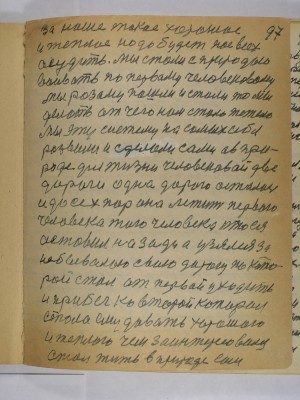 за наше такое хорошое 97
и теплое надо будет нас всех
судить. Мы стали с природою
по первому человековому
мы розами пошли и стали то мы
делать от чего нам стало тяжело
Мы эту систему на самих себя
розвили и сделали сами в при-
роде для жизни человековай две
дороги одна дорога осталась
и до сех пор она лежит первого
человека того человека кто ея
оставил на зади а увлекся за
небывалаю своею дорогу по кото-
рой стал от первай уходить
и прибег ко второй которая
стала ему давать хорошаго
и теплого чем заинтересовался
стал жить в природе сам